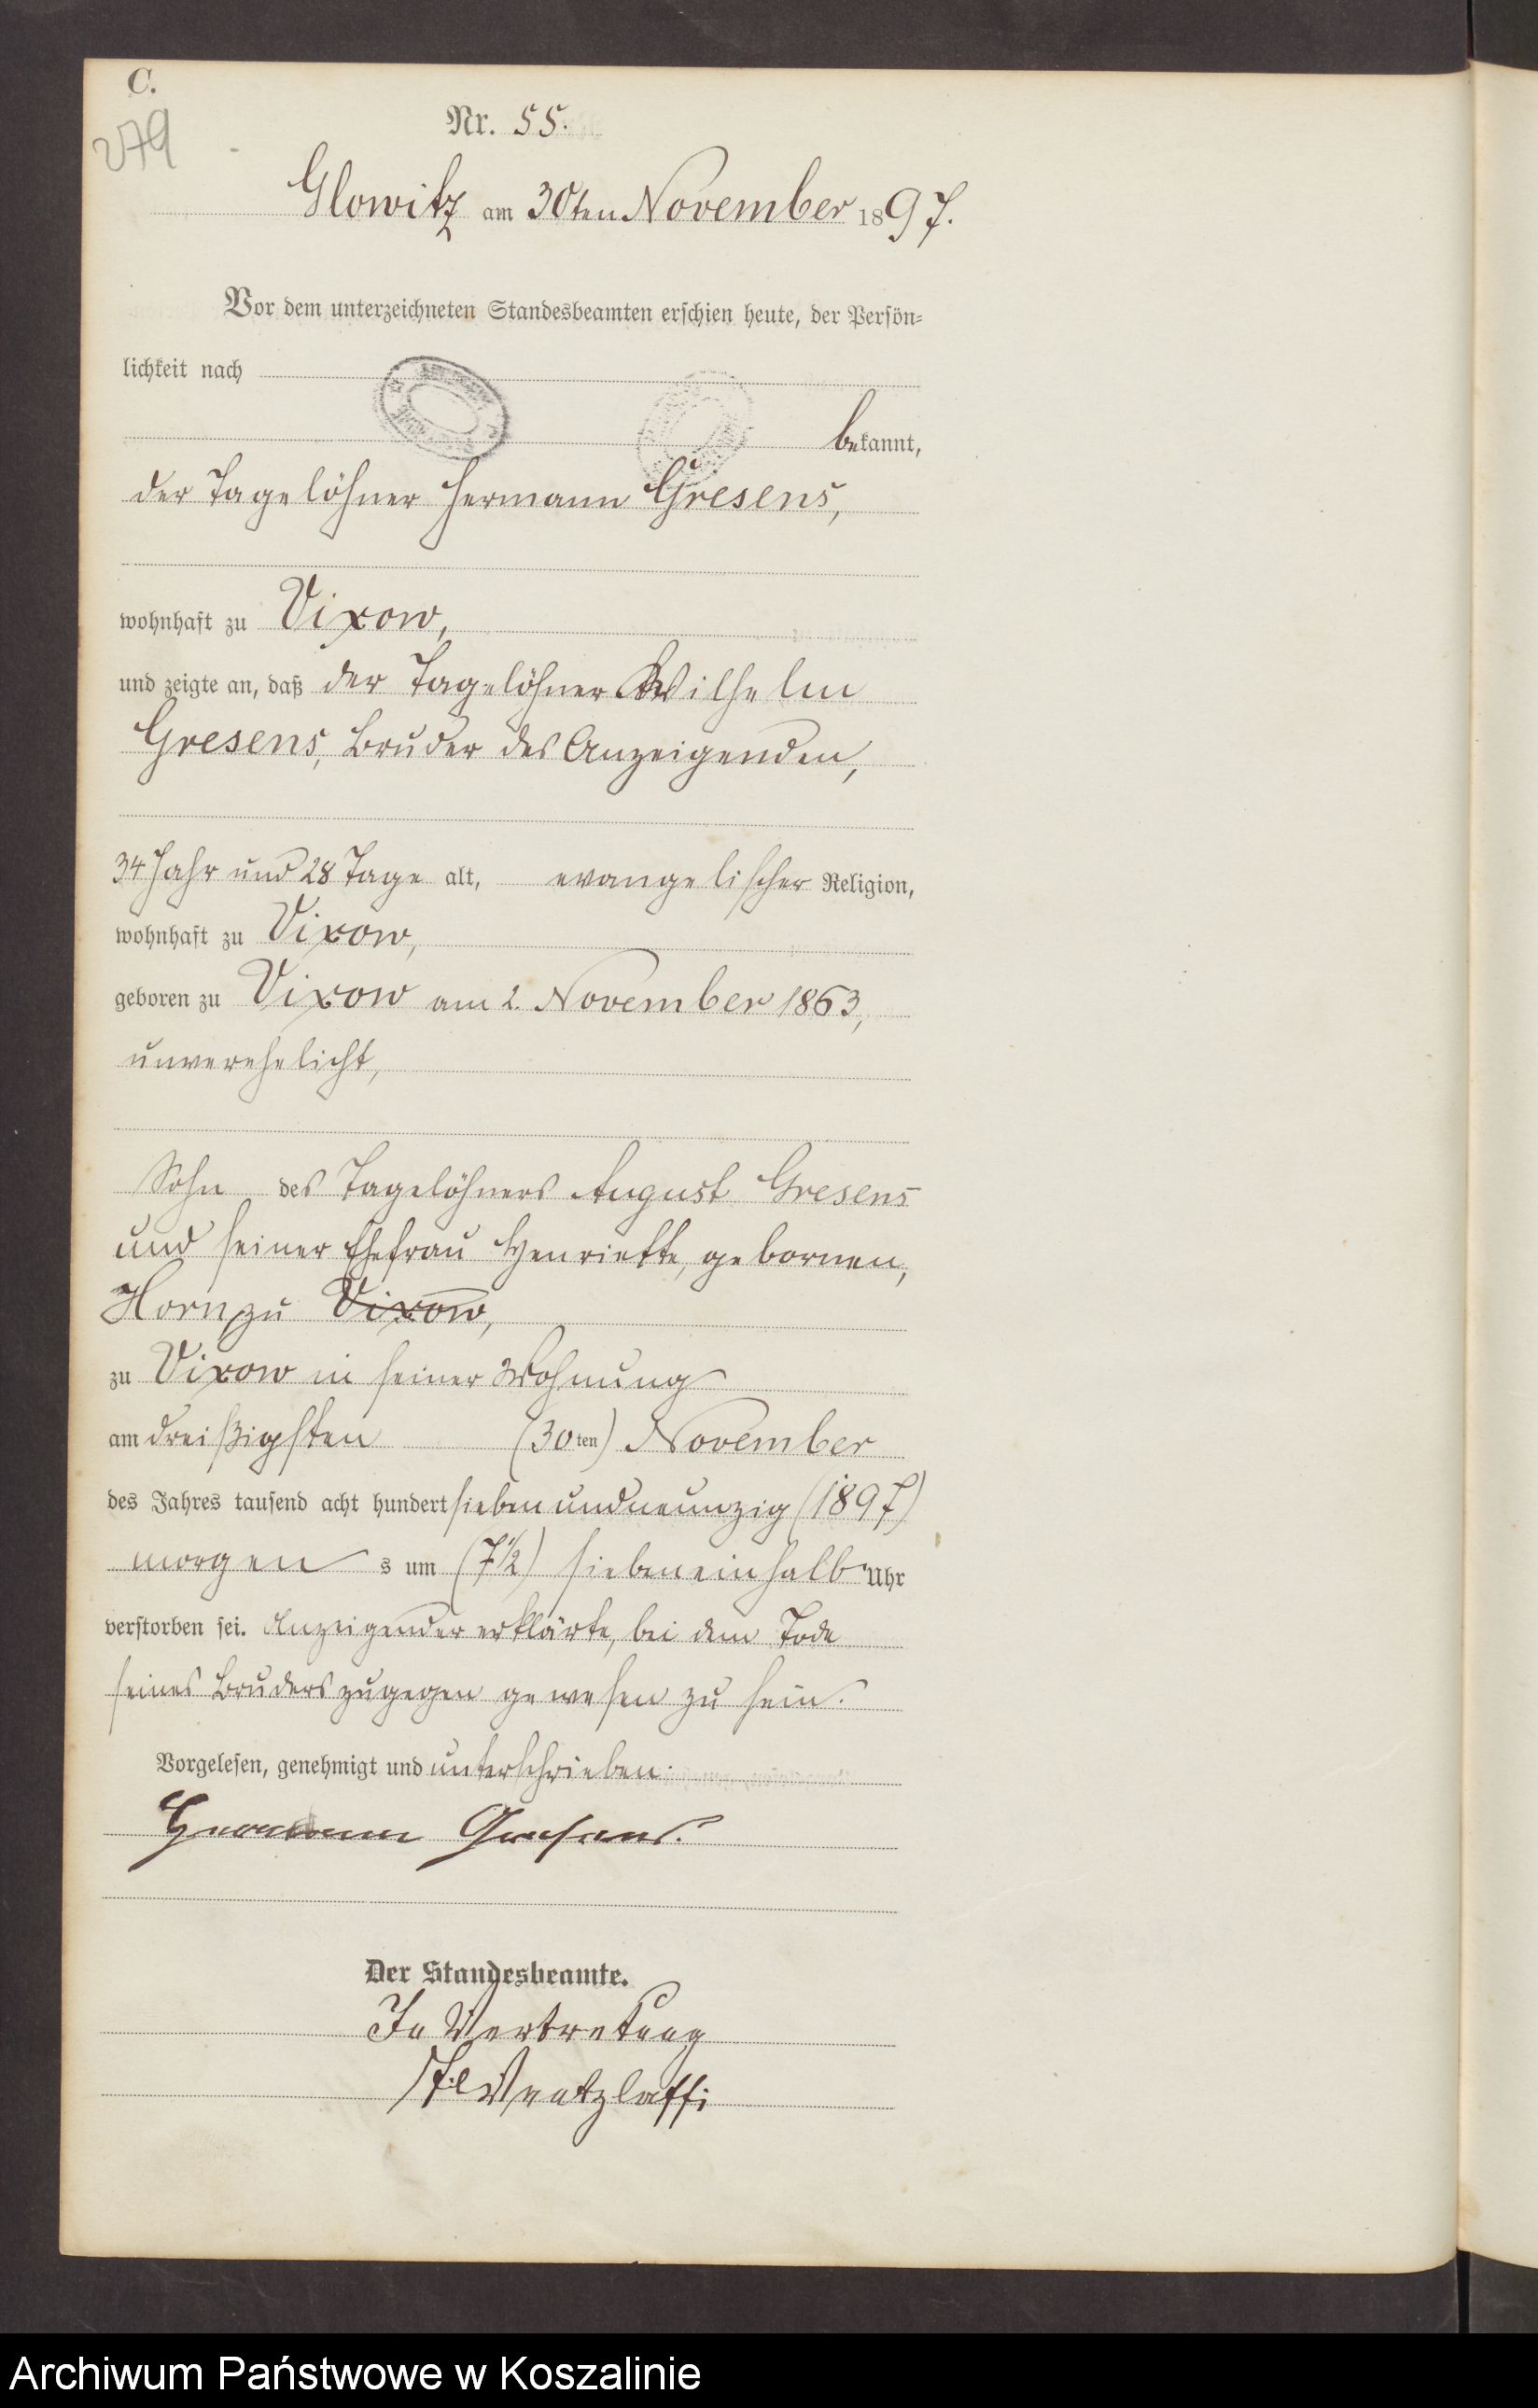 C.
279
Nr. 55.
Glowitz am 30ten November 1897.
Vor dem unterzeichneten Standesbeamten erschien heute, der Persön-
lichkeit nach
bekannt,
der Tagelöhner Hermann Gresens,
wohnhaft zu Vixow,
und zeigte an, daß der Tagelöhner Wilhelm
Gresens, Bruder des Anzeigenden,
34 Jahr und 28 Tage alt, evangelischer Religion,
wohnhaft zu Vixow,
geboren zu Vixow am 2. November 1863,
unverehelicht,
Sohn des Tagelöhners August Gresens
und seiner Ehefrau Henriette, gebornen,
Horn, zu Vixow,
zu Vixow in seiner Wohnung
am dreißigsten (30ten) November
des Jahres tausend acht hundert siebenundneunzig (1897)
morgens um (7 1/2) siebeneinhalb Uhr
verstorben sei. Anzeigender erklärte, bei dem Tode
seines Bruders zugegen gewesen zu sein.
Vorgelesen, genehmigt und unterschrieben.
Hermann Gresens.
Der Standesbeamte.
In Vertretung
Wentzlaff
Archiwum Państwowe w Koszalinie